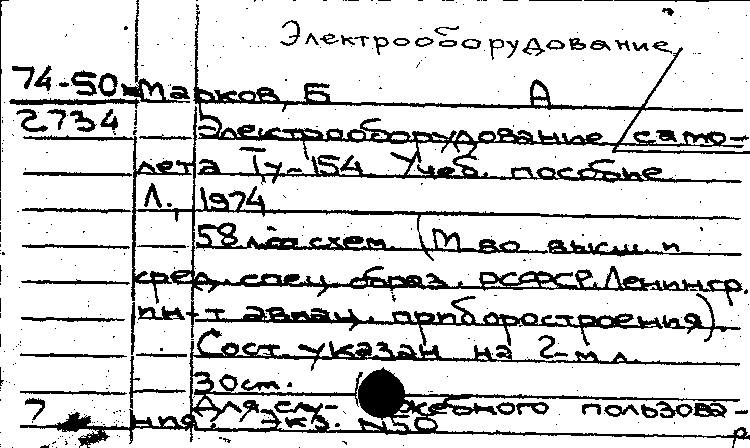 Электрооборудование
74-50 Марков, Б А
2734 Электрооборудование само-
лета Ту-154 Учеб. пособие
Л., 1974
58 л со схем. (М во высш и
сред. спец. образ. РСФСР. Ленингр.
ин-т авиац. приборостроения).
Сост. указан на 2-м л.
30 см.
7 Для слу- жебного пользова-
ния. Экз. N50